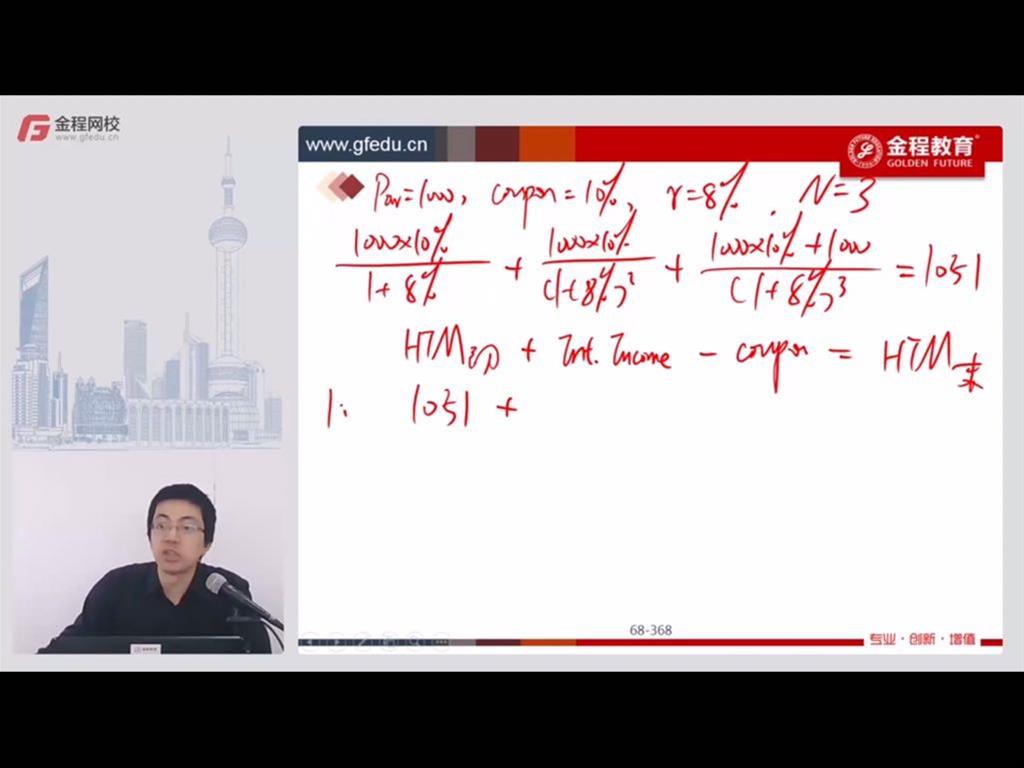 金程网校
www.gfedu.cn
www.gfedu.cn
金程教育
GOLDEN FUTURE
Par=1000, coupon=10%, r=8%. N=3
1000×10%/1+8% + 1000×10%/(1+8%)² + 1000×10%+1000/(1+8%)³ = 1051
HTM初 + Int. Income - coupon = HTM末
1: 1051 +
68-368
专业·创新·增值